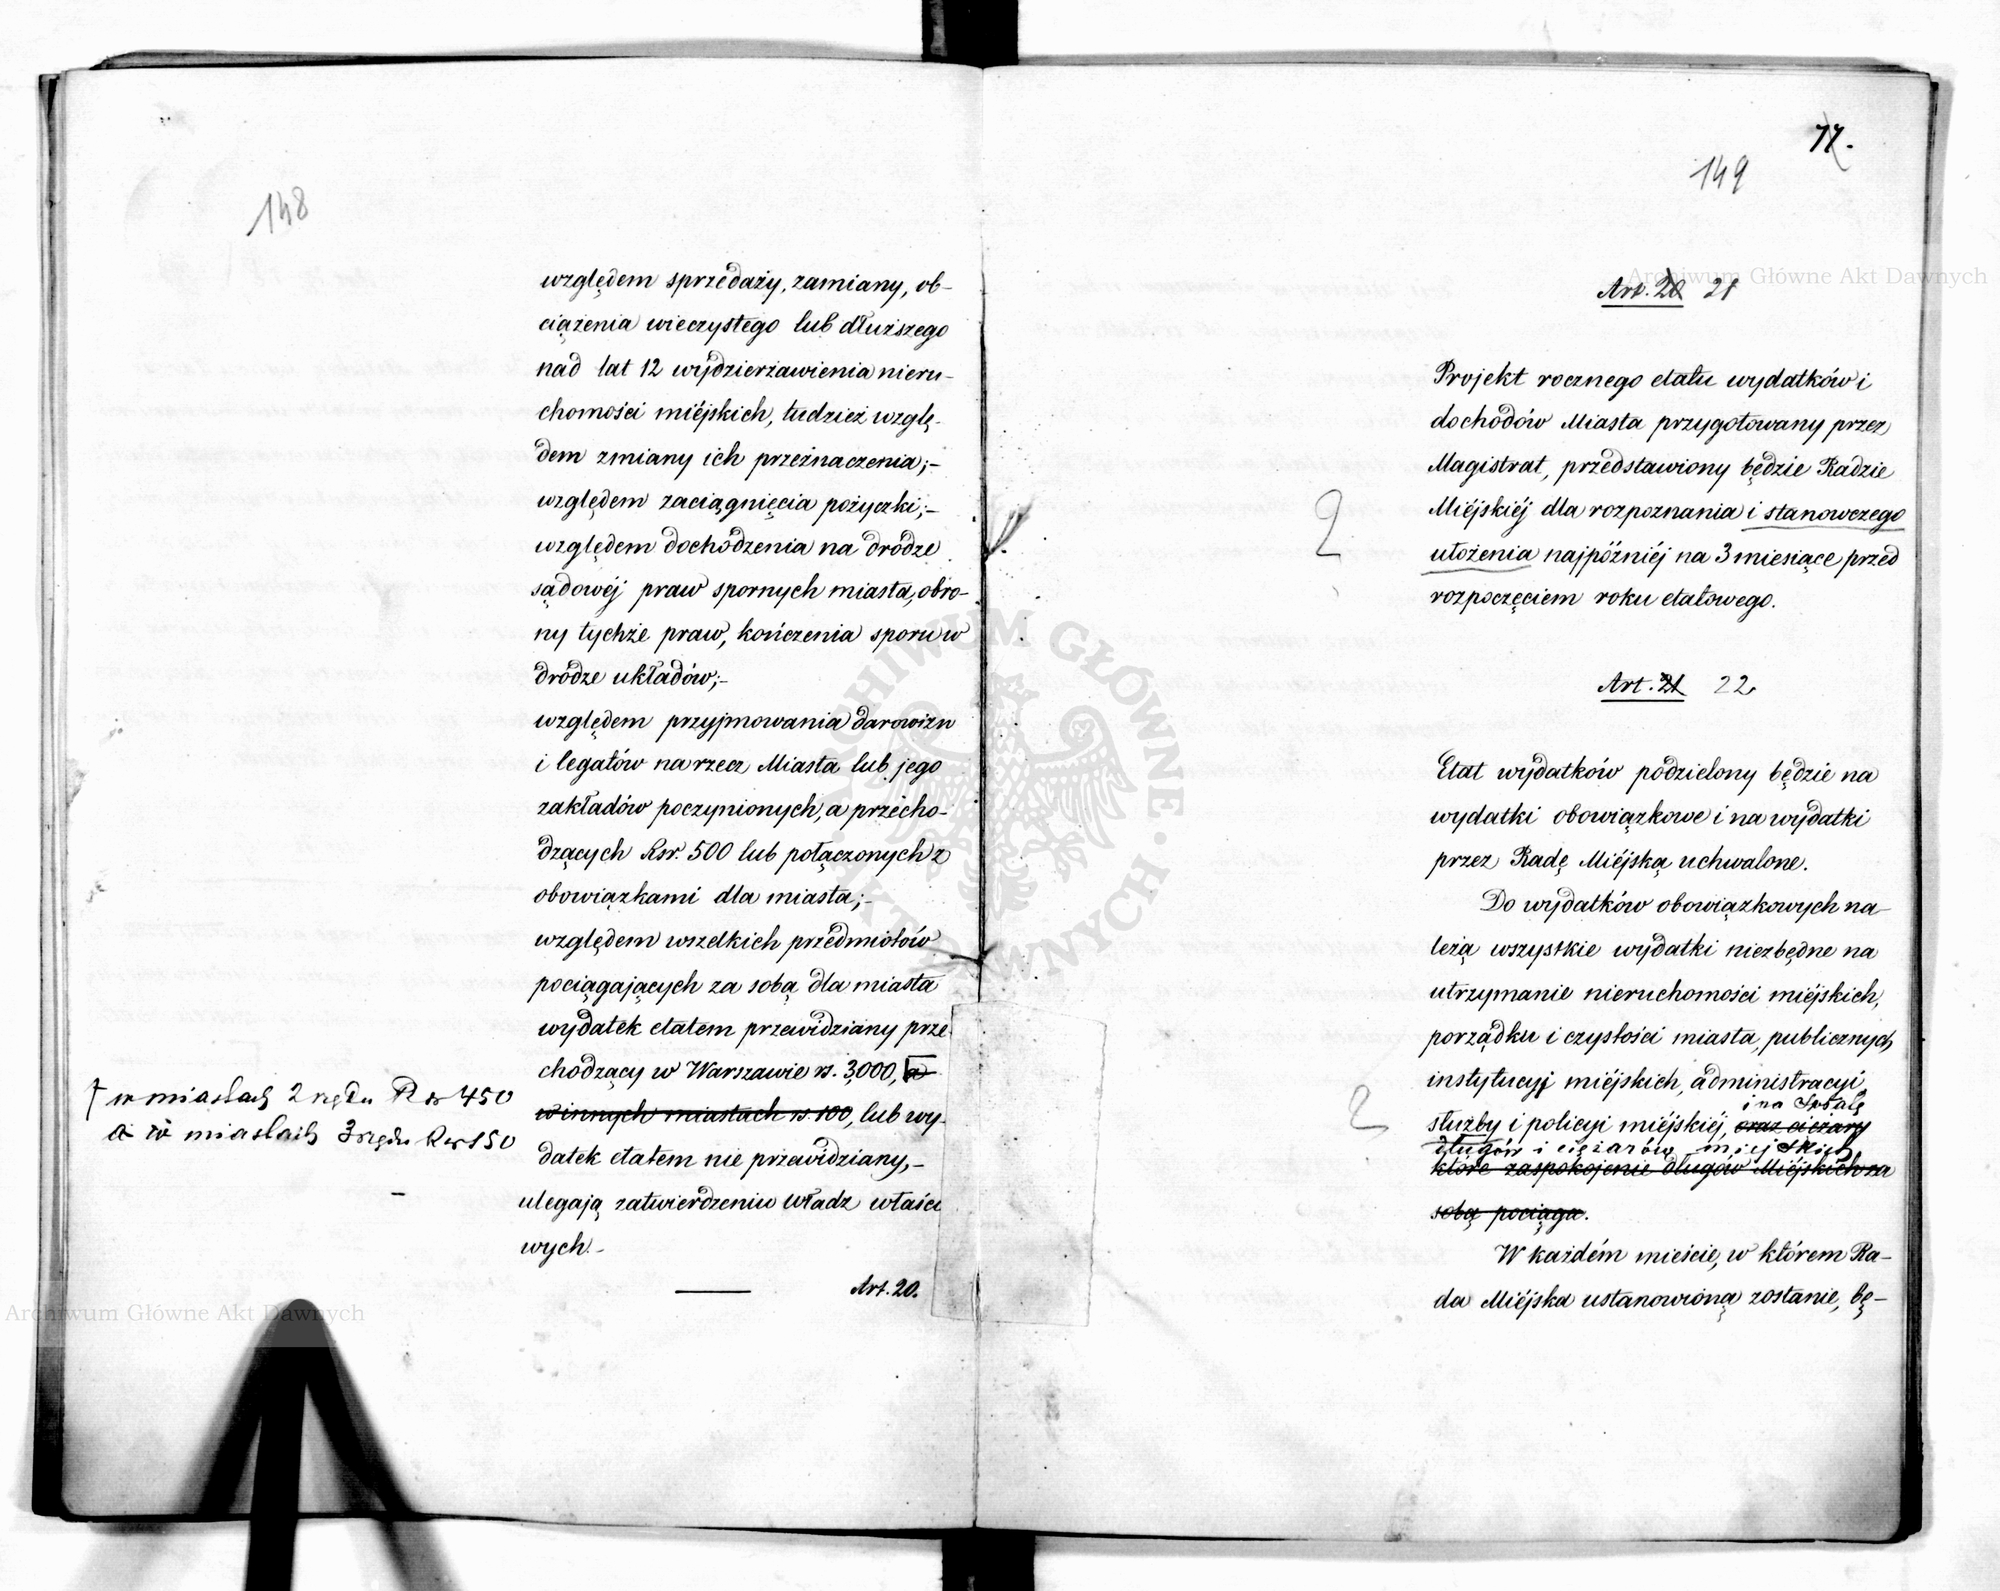 148
względem sprzedaży, zamiany, ob-
ciążenia wieczystego lub dłuższego
nad lat 12 wydzierżawienia nieru-
chomości miéjskich, tudzież wzglę-
dem zmiany ich przeznaczenia;-
względem zaciągnięcia pożyczki;-
względem dochodzenia na drodze
sądowéj praw spornych miasta, obro-
ny tychże praw, kończenia sporu w
drodze układów;-
względem przyjmowania darowizn
i legatów na rzecz Miasta lub jego
zakładów poczynionych, a przecho-
dzących Rsr. 500 lub połączonych z
obowiązkami dla miasta;-
względem wszelkich przedmiotów
pociągających za sobą dla miasta
wydatek etatem przewidziany prze
chodzący w Warszawie rs. 3,000, a
w innych miastach rs. 100, lub wy-
datek etatem nie przewidziany,-
ulegają zatwierdzeniu władz właści
wych.-
Art. 20.
w miastach 2 rzędu R sr 450
a w miastach 3 rzędu R sr 150
77.
149
Art. 20 21
Projekt rocznego etatu wydatków i
dochodów Miasta przygotowany przez
Magistrat, przedstawiony będzie Radzie
Miéjskiéj dla rozpoznania i stanowczego
ułożenia najpóźniéj na 3 miesiące przed
rozpoczęciem roku etatowego.
Art. 21 22
Etat wydatków podzielony będzie na
wydatki obowiązkowe i na wydatki
przez Radę Miéjską uchwalone.
Do wydatków obowiązkowych na-
leżą wszystkie wydatki niezbędne na
utrzymanie nieruchomości miéjskich,
porządku i czystości miasta, publicznych
instytucyj miéjskich, administracyi
i na spłatę
służby i policyi miéjskiéj, oraz ciężary
długów i ciężarów miejskich
które zaspokojenie długów Miéjskich za
sobą pociąga.
W każdém mieście, w którem Ra-
da Miéjska ustanowioną zostanie, bę-
Archiwum Główne Akt Dawnych
Archiwum Główne Akt Dawnych
ARCHIWUM GŁÓWNE AKT DAWNYCH